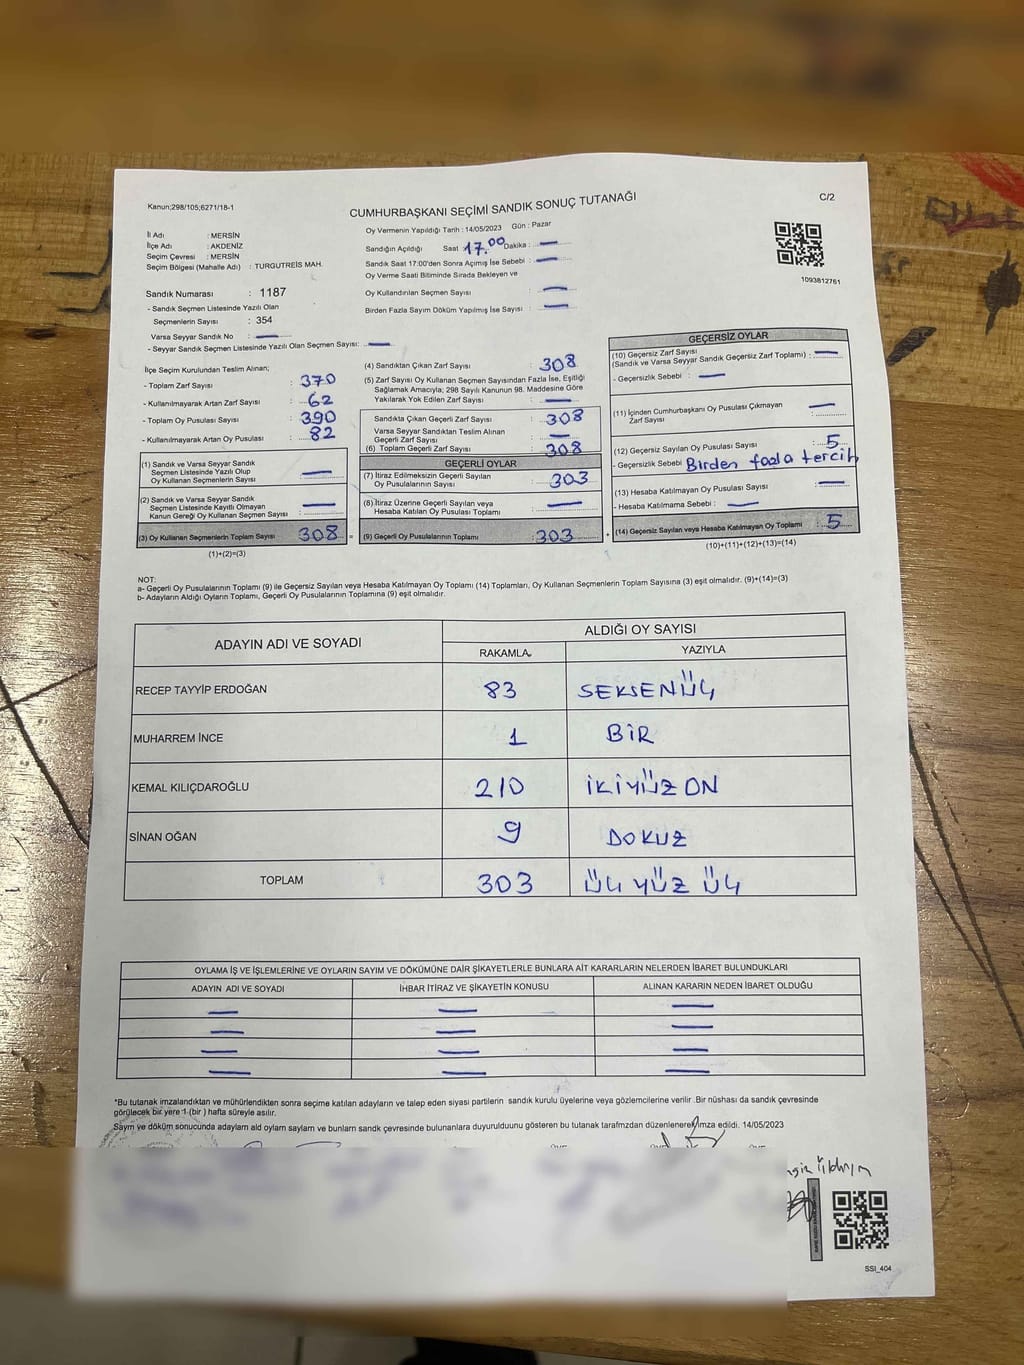 Kanun;298/105;6271/18-1
CUMHURBAŞKANI SEÇİMİ SANDIK SONUÇ TUTANAĞI
C/2
İl Adı : MERSİN
İlçe Adı : AKDENİZ
Seçim Çevresi : MERSİN
Seçim Bölgesi (Mahalle Adı) : TURGUTREİS MAH.
Oy Vermenin Yapıldığı Tarih : 14/05/2023 Gün : Pazar
Sandığın Açıldığı Saat 17.00 Dakika : —
Sandık Saat 17:00'den Sonra Açımış İse Sebebi : —
Oy Verme Saati Bitiminde Sırada Bekleyen ve
Oy Kullandırılan Seçmen Sayısı : —
Birden Fazla Sayım Döküm Yapılmış İse Sayısı : —
1093812761
Sandık Numarası : 1187
- Sandık Seçmen Listesinde Yazılı Olan
Seçmenlerin Sayısı : 354
Varsa Seyyar Sandık No : —
- Seyyar Sandık Seçmen Listesinde Yazılı Olan Seçmen Sayısı: —
İlçe Seçim Kurulundan Teslim Alınan;
- Toplam Zarf Sayısı : 370
- Kullanılmayarak Artan Zarf Sayısı : 62
- Toplam Oy Pusulası Sayısı : 390
- Kullanılmayarak Artan Oy Pusulası : 82
(1) Sandık ve Varsa Seyyar Sandık
Seçmen Listesinde Yazılı Olup
Oy Kullanan Seçmenlerin Sayısı : —
(2) Sandık ve Varsa Seyyar Sandık
Seçmen Listesinde Kayıtlı Olmayan
Kanun Gereği Oy Kullanan Seçmen Sayısı : —
(3) Oy Kullanan Seçmenlerin Toplam Sayısı 308 =
(1)+(2)=(3)
(4) Sandıktan Çıkan Zarf Sayısı : 308
(5) Zarf Sayısı Oy Kullanan Seçmen Sayısından Fazla İse, Eşitliği
Sağlamak Amacıyla; 298 Sayılı Kanunun 98. Maddesine Göre
Yakılarak Yok Edilen Zarf Sayısı : —
Sandıkta Çıkan Geçerli Zarf Sayısı : 308
Varsa Seyyar Sandıktan Teslim Alınan
Geçerli Zarf Sayısı : —
(6) Toplam Geçerli Zarf Sayısı : 308
GEÇERLİ OYLAR
(7) İtiraz Edilmeksizin Geçerli Sayılan
Oy Pusulalarının Sayısı : 303
(8) İtiraz Üzerine Geçerli Sayılan veya
Hesaba Katılan Oy Pusulası Toplamı : —
(9) Geçerli Oy Pusulalarının Toplamı : 303 +
GEÇERSİZ OYLAR
(10) Geçersiz Zarf Sayısı
(Sandık ve Varsa Seyyar Sandık Geçersiz Zarf Toplamı) : —
- Geçersizlik Sebebi : —
(11) İçinden Cumhurbaşkanı Oy Pusulası Çıkmayan
Zarf Sayısı : —
(12) Geçersiz Sayılan Oy Pusulası Sayısı : 5
- Geçersizlik Sebebi Birden fazla tercih
(13) Hesaba Katılmayan Oy Pusulası Sayısı : —
- Hesaba Katılmama Sebebi : —
(14) Geçersiz Sayılan veya Hesaba Katılmayan Oy Toplamı : 5
(10)+(11)+(12)+(13)=(14)
NOT:
a- Geçerli Oy Pusulalarının Toplamı (9) ile Geçersiz Sayılan veya Hesaba Katılmayan Oy Toplamı (14) Toplamları, Oy Kullanan Seçmenlerin Toplam Sayısına (3) eşit olmalıdır. (9)+(14)=(3)
b- Adayların Aldığı Oyların Toplamı, Geçerli Oy Pusulalarının Toplamına (9) eşit olmalıdır.
ADAYIN ADI VE SOYADI
ALDIĞI OY SAYISI
RAKAMLA YAZIYLA
RECEP TAYYİP ERDOĞAN 83 SEKSENÜÇ
MUHARREM İNCE 1 BİR
KEMAL KILIÇDAROĞLU 210 İKİYÜZ ON
SİNAN OĞAN 9 DOKUZ
TOPLAM 303 ÜÇ YÜZ ÜÇ
OYLAMA İŞ VE İŞLEMLERİNE VE OYLARIN SAYIM VE DÖKÜMÜNE DAİR ŞİKAYETLERLE BUNLARA AİT KARARLARIN NELERDEN İBARET BULUNDUKLARI
ADAYIN ADI VE SOYADI İHBAR İTİRAZ VE ŞİKAYETİN KONUSU ALINAN KARARIN NEDEN İBARET OLDUĞU
— — —
— — —
— — —
— — —
*Bu tutanak imzalandıktan ve mühürlendikten sonra seçime katılan adayların ve talep eden siyasi partilerin sandık kurulu üyelerine veya gözlemcilerine verilir. Bir nüshası da sandık çevresinde
görülecek bir yere 1 (bir ) hafta süreyle asılır.
Sayım ve döküm sonucunda adayların ald oyların sayların ve bunların sandk çevresinde bulunanlara duyurulduunu gösteren bu tutanak tarafmzdan düzenlenerek imza edildi. 14/05/2023
SSI_404